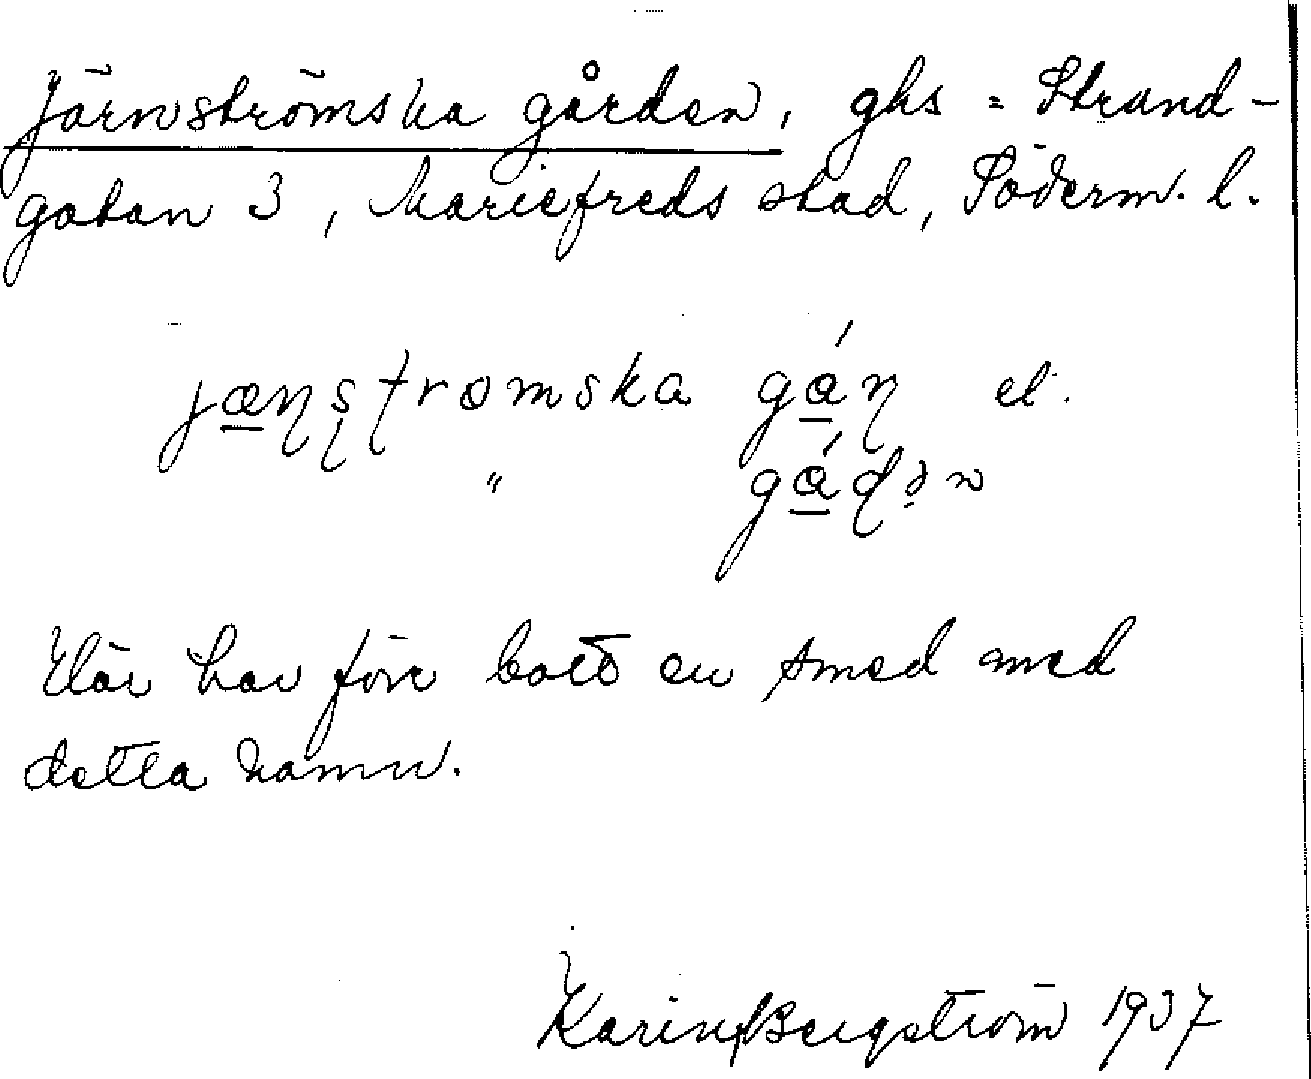 Järnströmska gården, ghs = Strand-
gatan 3, Mariefreds stad, Söderm. l.
jæɳʂʈrømska gá̱ɳ el.
" gá̱ɖən
Här har förr bott en smed med
detta namn.
Karin Bergström 1937